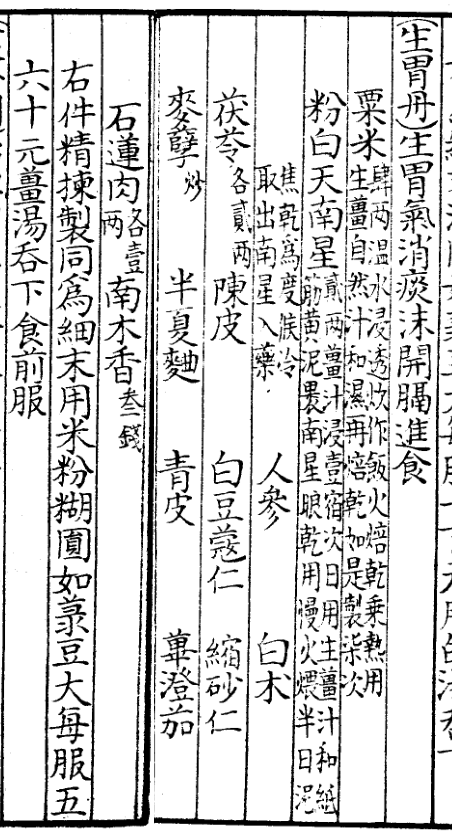 (生胃丹)生胃氣消痰沫開膈進食
粟米肆两温水浸透炊作飯火焙乾乘熱用生薑自然汁和濕再焙乾如是製柒次
粉白天南星貳两薑汁浸壹宿次日用生薑汁和紙筋黃泥裹南星眼乾用慢火煨半日泥
焦乾爲度候冷取出南星入藥 人參 白术
茯苓各貳两 陳皮 白豆蔻仁 縮砂仁
麥孽炒 半夏麯 青皮 蓽澄茄
石蓮肉各壹两 南木香叁錢
右件精揀製同爲細末用米粉糊圓如菉豆大每服五
六十元薑湯吞下食前服